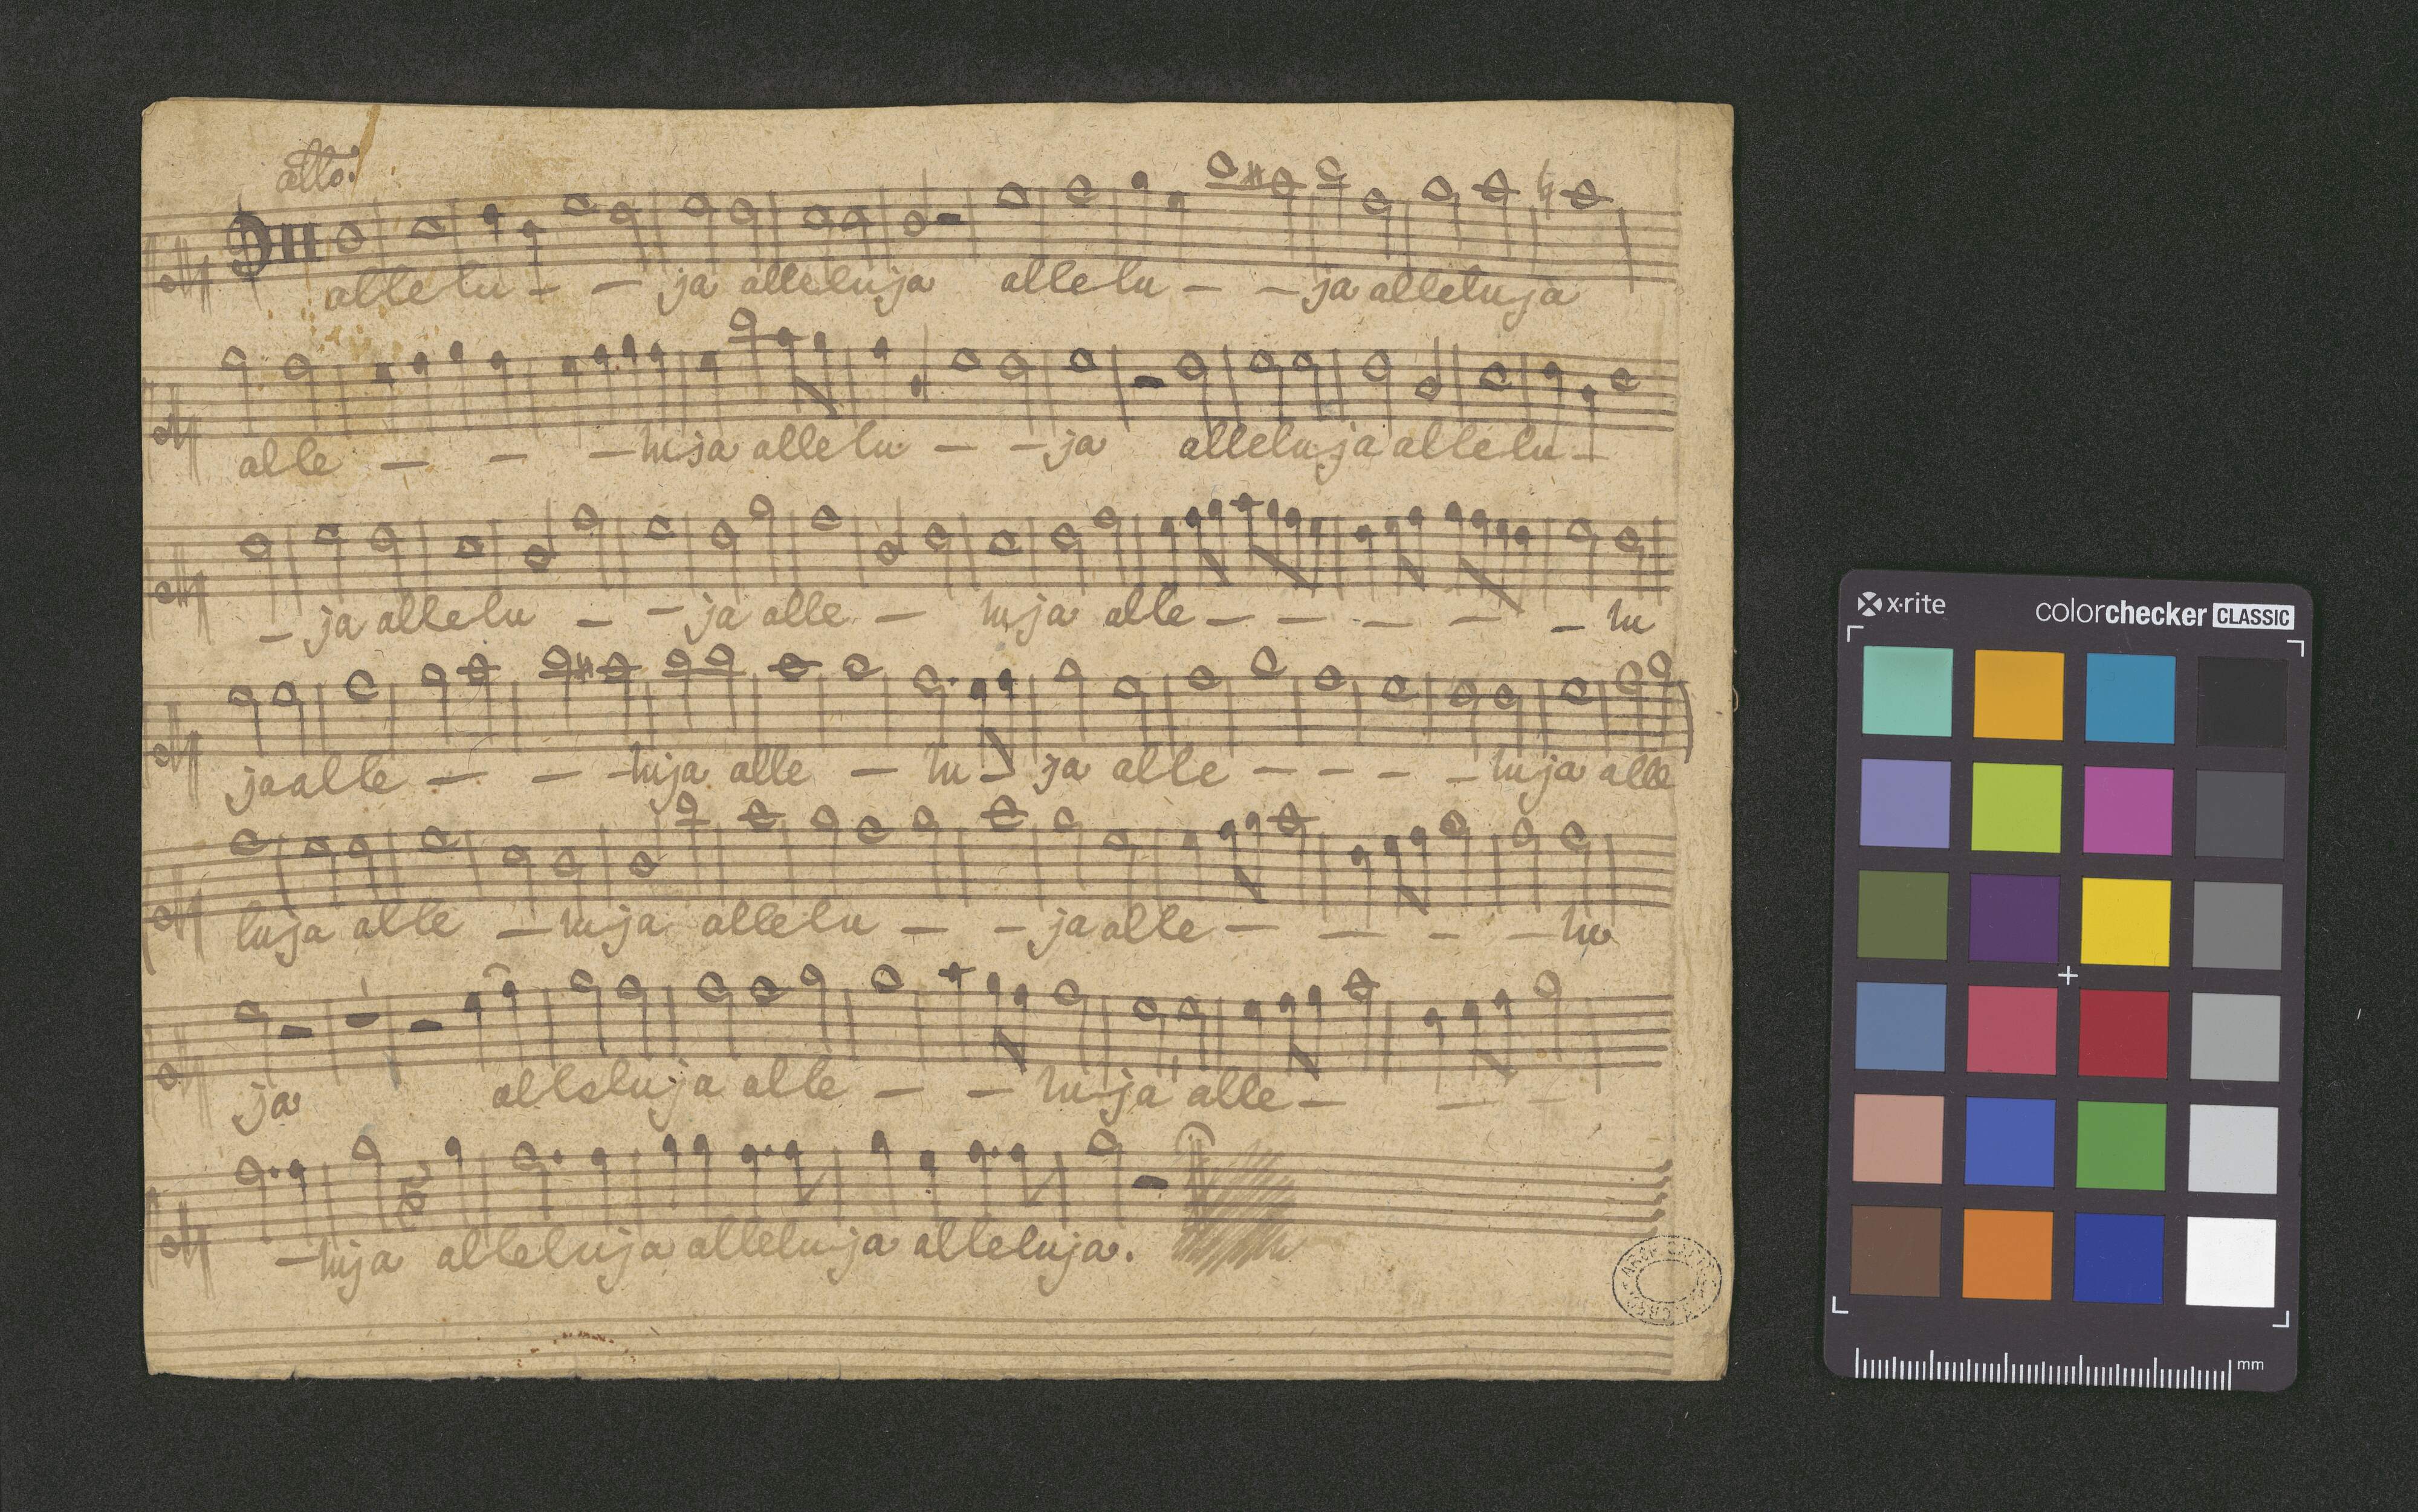 alto.
allelu - - ja alleluja allelu - - ja alleluja
alle - - - luja allelu - - ja alleluja allelu -
- ja allelu - - ja alle - luja alle - - - - - lu
ja alle - - - luja alle - lu - ja alle - - - - luja alle
luja alle - luja allelu - - ja alle - - - - lu
ja alleluja alle - - luja alle - - -
- luja alleluja alleluja alleluja.
x-rite
colorchecker CLASSIC
mm